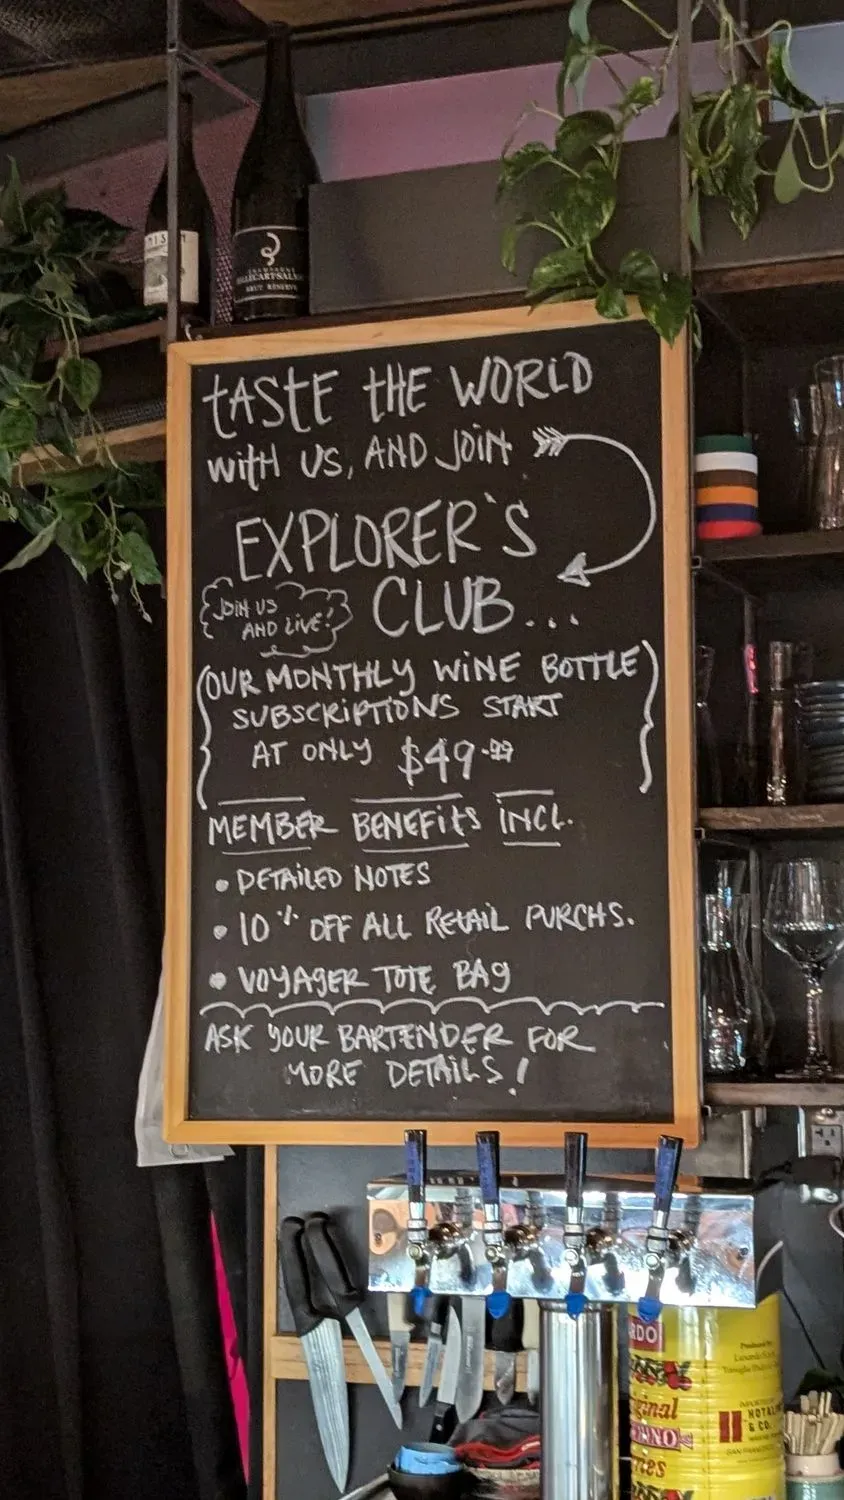 CHAMPAGNE
BRUT RÉSERVE
tASTE tHE WORLD
With US, AND JOiN
EXPLORER'S
CLUB...
JOiN US
AND LiVE!
OUR MONTHLY WiNE BOTTLE
SUBSCRiPTiONS START
AT ONLY $49.99
MEMBER BENEFits INCL.
• DETAiLED NOTES
• 10% OFF ALL RETAiL PURCHS.
• VOYAGER TOTE BAG
ASK YOUR BARTENDER FOR
MORE DETAiLS!
Produced by:
HOTAL
& CO.
SAN FRANCISCO